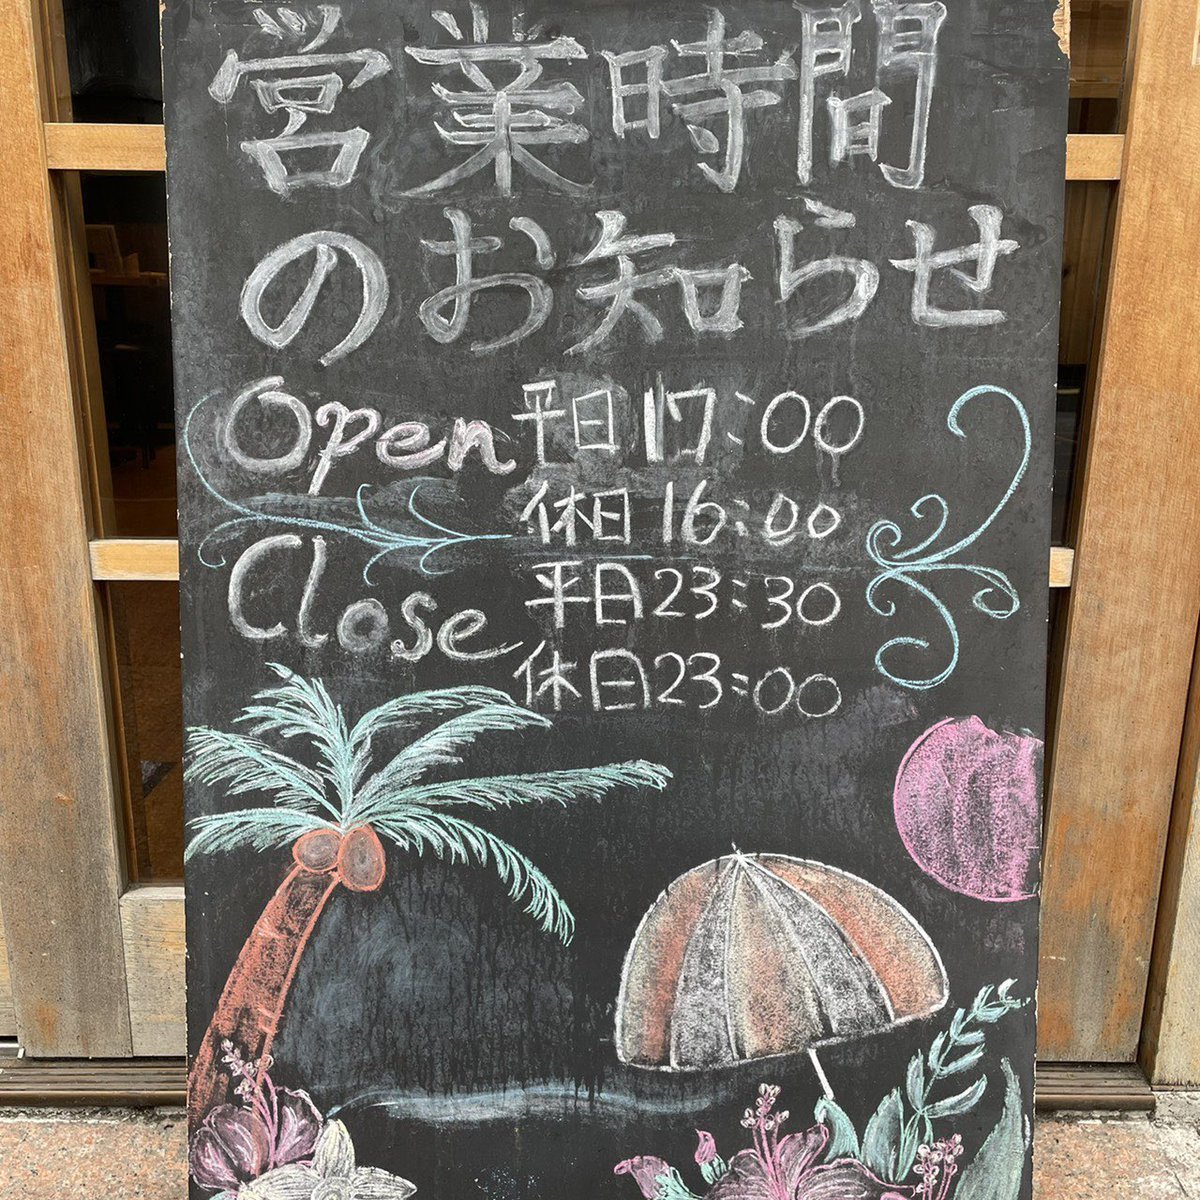 営業時間
のお知らせ
Open 平日 17:00
休日 16:00
Close 平日 23:30
休日 23:00